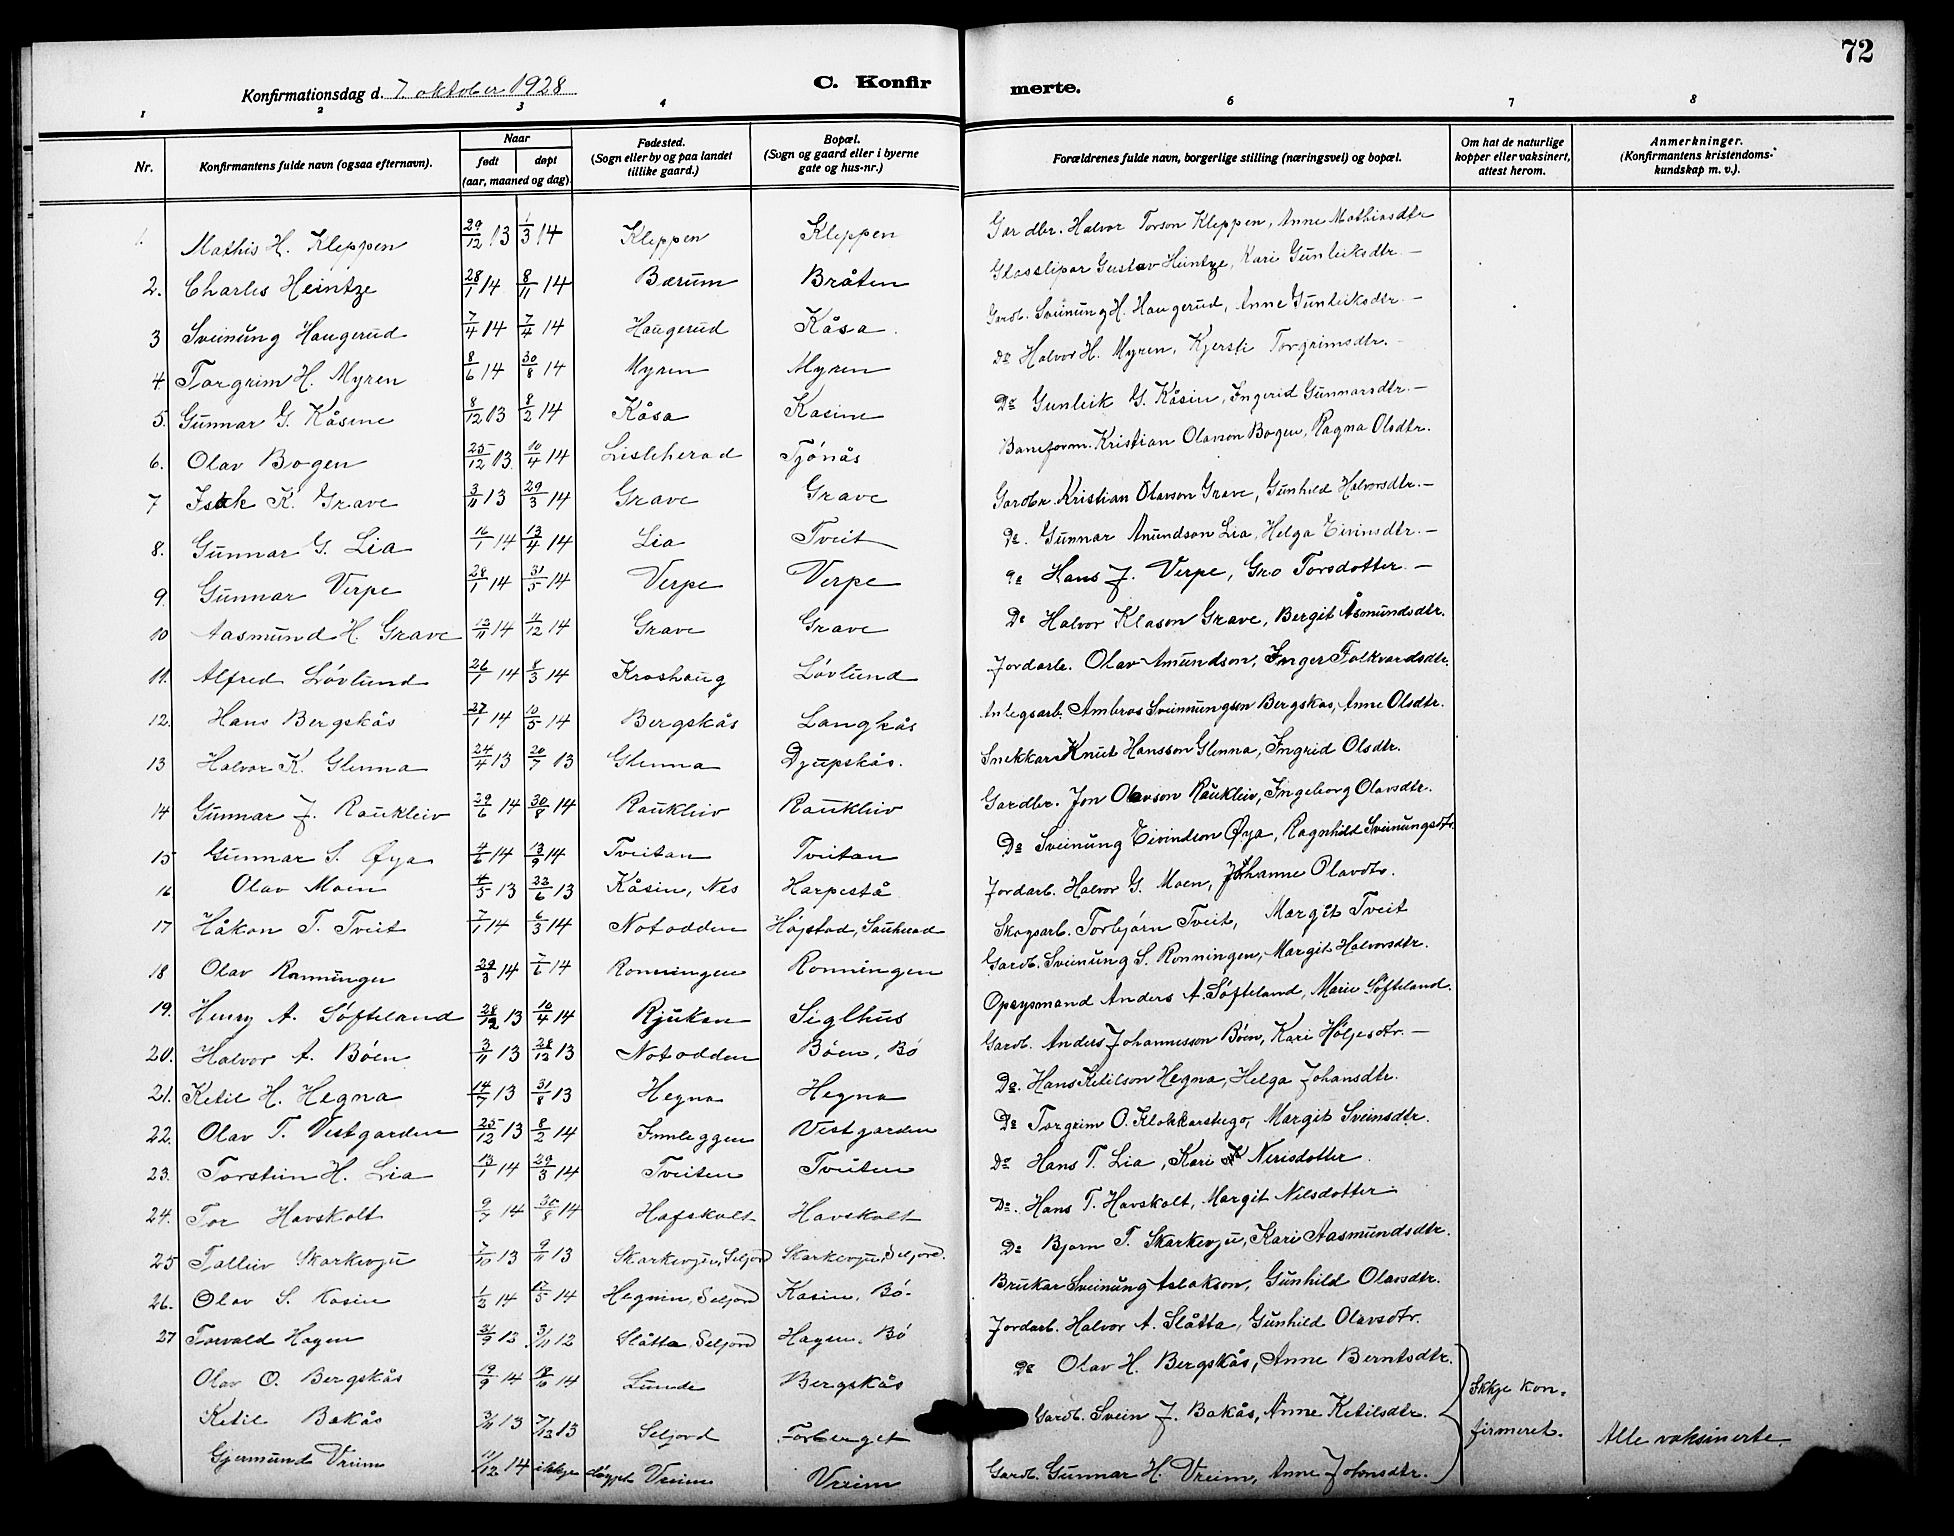 72
Konfirmationsdag d. 7. oktober 1928
C. Konfirmerte.
1 2 3 4 5 6 7 8
Nr. Konfirmantens fulde navn (ogsaa efternavn). Naar født døpt (aar, maaned og dag). Fødested. (Sogn eller by og paa landet tillike gaard.) Bopæl. (Sogn og gaard eller i byerne gate og hus-nr.) Forældrenes fulde navn, borgerlige stilling (næringsvei) og bopæl. Om hat de naturlige kopper eller vaksinert, attest herom. Anmerkninger. (Konfirmantens kristendoms-kundskap m. v.).
1. Mathis H. Kleppen 29/12 13 1/3 14 Kleppen Kleppen Gardbr. Halvor Torson Kleppen, Anne Mathiasdtr
2. Charles Heintze 28/1 14 8/11 14 Bærum Bråten Glasslipar Gustav Heintze, Kari Gunleiksdtr. –
3 Sveinung Haugerud 7/4 14 7/4 14 Haugerud Kåsa. Gardb. Sveinung H. Haugerud, Anne Gunleiksdtr. –
4 Torgrim H. Myren 8/6 14 30/8 14 Myren Myren Do Halvor H. Myren, Kjersti Torgrimsdtr. –
5. Gunnar G. Kåsine 8/12 13 8/2 14 Kåsa Kasine Do Gunleik G. Kåsin, Ingerid Gunnarsdtr. –
6. Olav Bogen 25/12 13. 10/4 14 Lisleherad Tjónås Baneform. Kristian Olavson Bogen, Ragna Olsdtr.
7 Isak K. Grave 3/11 13 29/3 14 Grave Grave Gardbr. Kristian Olavson Grave, Gunhild Halvorsdtr. –
8. Gunnar G. Lia 16/1 14 13/4 14 Lia Tveit Do. Gunnar Anundson Lia, Helga Eivinsdtr. –
9. Gunnar Verpe 28/1 14 31/5 14 Verpe Verpe Do Hans J. Verpe, Gro Torsdotter. –
10 Aasmund H. Grave 13/11 14 4/12 14 Grave Grave Do Halvor Klason Grave, Bergit Åsmundsdtr.
11. Alfred Lóvlund 26/1 14 8/3 14 Kroshaug Lóvlund Jordarb. Olav Amundson, Inger Folkvardsdtr.
12. Hans Bergskås 27/1 14 10/5 14 Bergskås Langkås Anlegsarb. Ambros Sveinungson Bergskas, Anne Olsdtr.
13 Halvor K. Glenna 24/4 13 20/7 13 Glenna Djupskås. Snekkar Knut Hansson Glenna, Ingrid Olsdtr.
14 Gunnar J. Raukleiv 29/6 14 30/8 14 Raukleiv Raukleiv Gardbr. Jon Olavson Raukleiv, Ingeborg Olavsdtr.
15 Gunnar S. Øya 4/6 14 13/9 14 Tveitan Tveitan Do Sveinung Eivindson Øya, Ragnhild Sveinungsdtr.
16 Olav Moen 4/5 13 22/6 13 Kåsin, Nes Harpestå Jordarb. Halvor G. Moen, Johanne Olavdtr.
17 Håkon T. Tveit 7/1 14 6/3 14 Notodden Højstad, Sauherad Skogsarb. Torbjørn Tveit, Margit Tveit
18 Olav Rønningen 29/3 14 7/6 14 Ronningen Ronningen Gardb. Sveinung S. Ronningen, Margit Halvorsdtr.
19. Henry A. Sófteland 28/12 13 10/4 14 Rjukan Siglhus Opsysmand Anders A. Sófteland, Marie Sófteland.
20. Halvor A. Bóen 3/11 13 28/12 13 Notodden Bóen, Bó Gardb. Anders Johannesson Bóen, Kari Høljesdtr. –
21. Ketil H. Hegna 14/7 13 31/8 13 Hegna Hegna Do. Hans Ketilson Hegna, Helga Johansdtr.
22. Olav T. Vestgarden 25/12 13 8/2 14 Innleggen Vestgarden Do Torgrim O. Klokkarstugo, Margit Sveinsdtr.
23. Torstein H. Lia 13/1 14 29/3 14 Tveiten Tveiten Do Hans T. Lia, Kari Nerisdotter.
24. Tor Havskolt 9/7 14 30/8 14 Hafskolt Havskolt Do. Hans T. Havskolt, Margit Nilsdotter
25 Talleiv Skarkevju 7/10 13 9/11 13 Skarkevju, Seljord Skarkevju, Seljord. Do Bjørn T. Skarkevju, Kari Aasmundsdtr.
26. Olav S. Kasin 1/2 14 17/5 14 Hegnin, Seljord Kasin, Bó. Brukar Sveinung Aslakson, Gunhild Olavsdtr.
27 Torvald Hagen 3/11 12 Slåtta, Seljord Hagen, Bó Jordarb. Halvor A. Slåtta, Gunhild Olavsdtr.
Olav O. Bergskås 19/9 14 18/10 14 Lunde Bergskås Do Olav H. Bergskås, Anne Berntsdtr.
Ketil Bakås 3/11 13 7/12 13 Seljord Forberget Gardb. Svein J. Bakås, Anne Ketilsdtr.
Gjermund Vreim 11/12 14 ikkje dóypt Vreim Vreim Gardb. Gunnar H. Vreim, Anne Johnsdtr.
Ikkje kon-
firmeret.
Alle vaksinerte.